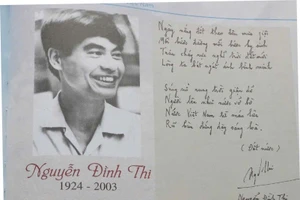 Ngày nắng đốt theo đêm mưa giội
Mỗi bước đường mỗi bước hy sinh
Trán cháy rực nghĩ trời đất mới
Lòng ta bát ngát ánh bình minh
Súng nổ rung trời giận dữ
Người lên như nước vỡ bờ
Nước Việt Nam từ máu lửa
Rũ bùn đứng dậy sáng loà.
(Đất nước)
Nguyễn Đình Thi
Nguyễn Đình Thi
1924 - 2003